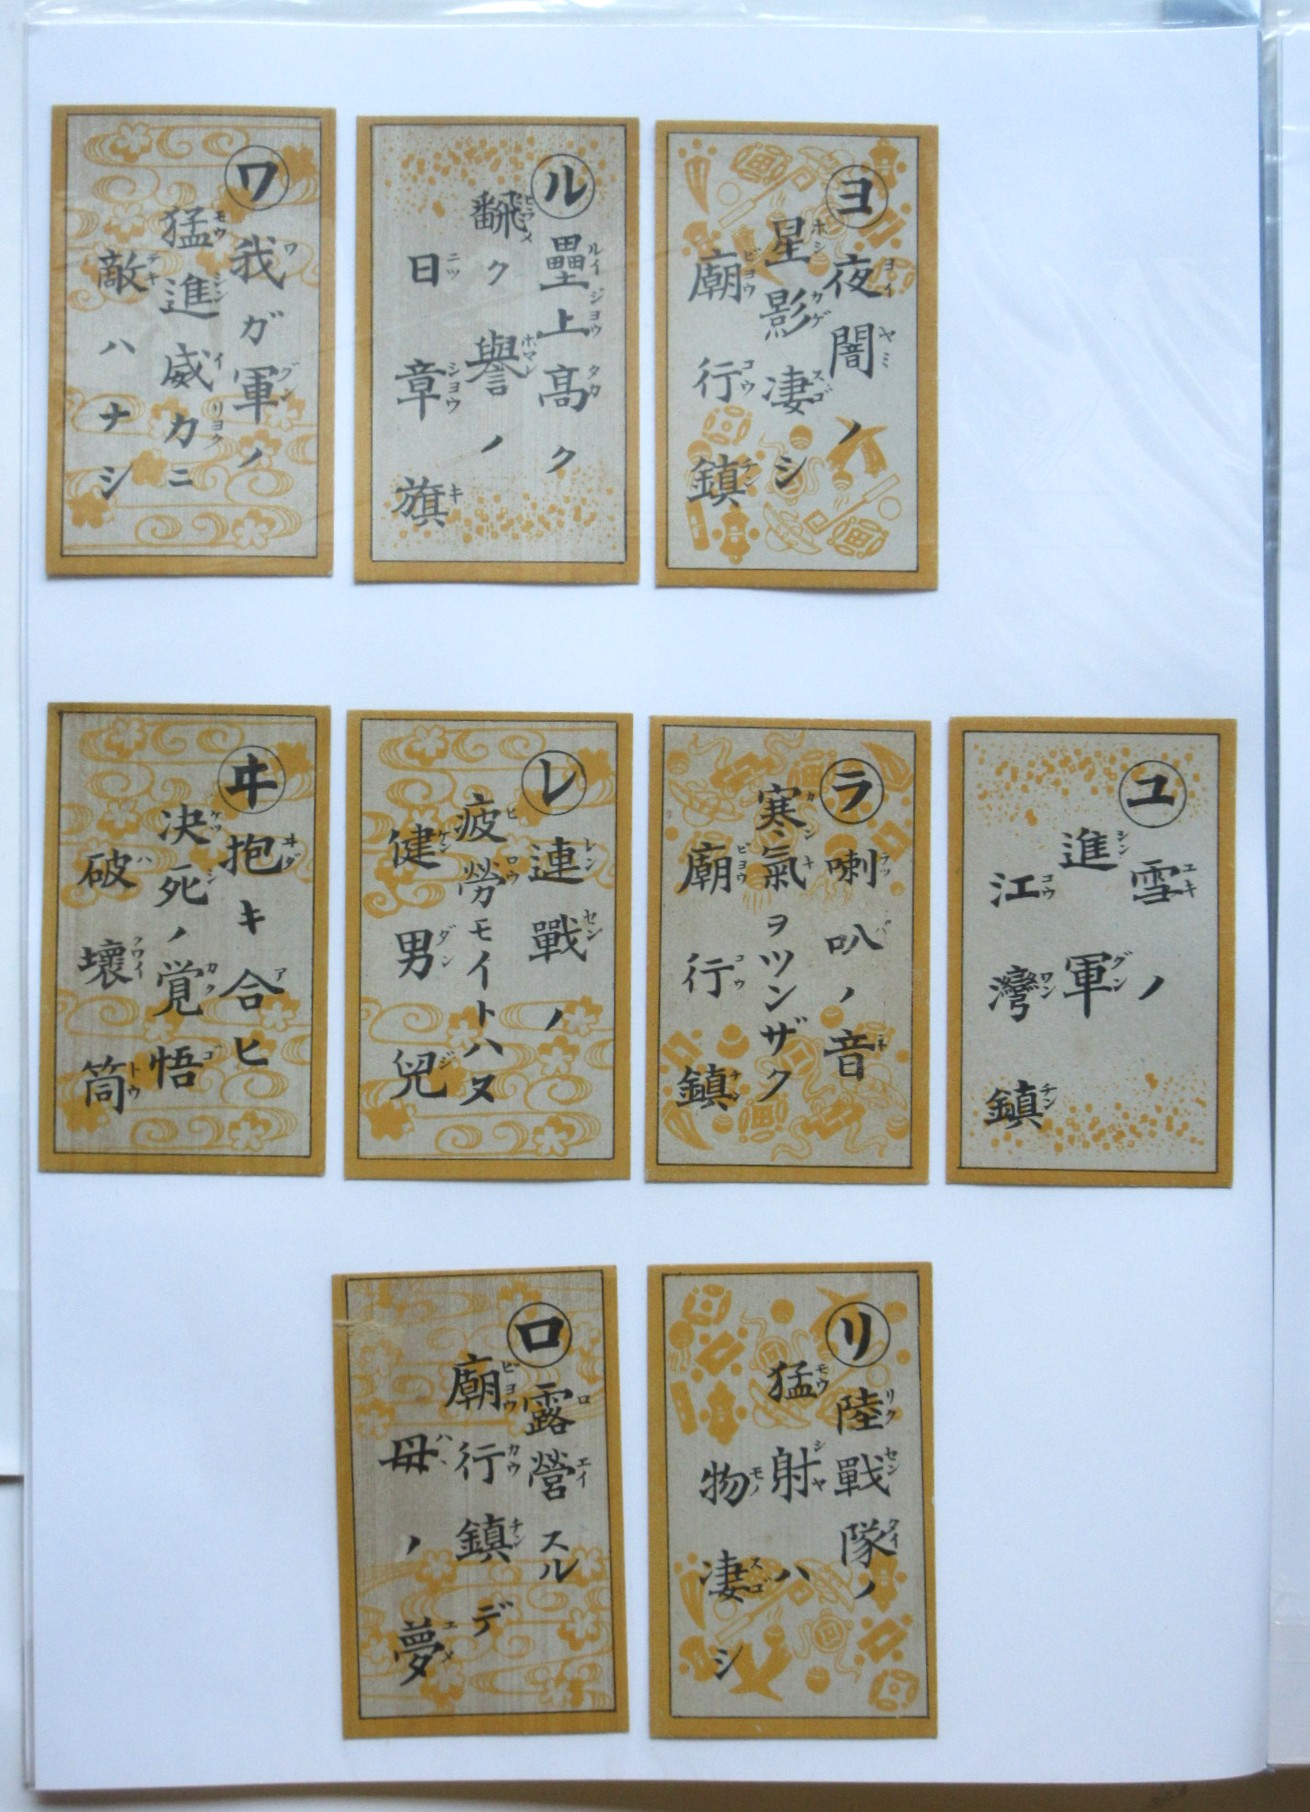 ワ
我ガ軍ノ
猛進威力ニ
敵ハナシ
ル
壘上高ク
飜ク譽ノ
日章旗
ヨ
夜闇ノ
星影凄シ
廟行鎮
ヰ
抱キ合ヒ
决死ノ覚悟
破壊筒
レ
連戰ノ
疲労モイトハヌ
健男兒
ラ
喇叭ノ音
寒氣ヲツンザク
廟行鎮
ユ
雪ノ
進軍
江灣鎮
ロ
露營スル
廟行鎮デ
母ノ夢
リ
陸戰隊ノ
猛射ハ
物凄シ